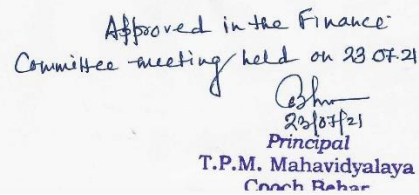 Approved in the Finance
Committee meeting held on 23 07.21
23/07/21
Principal
T.P.M. Mahavidyalaya
Cooch Behar